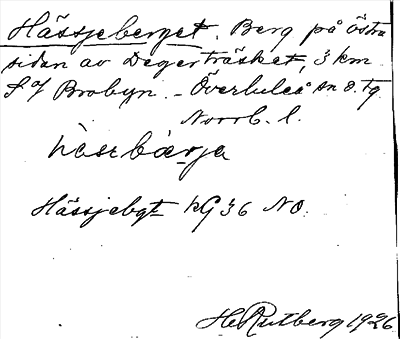 Hässjeberget. Berg på östra
sidan av Degerträsket, 3 km
S of Brobyn. - Överluleå sn o. tg.
Norrb. l.
Hässjebgt kG 36 NO.
H. Rutberg 1926